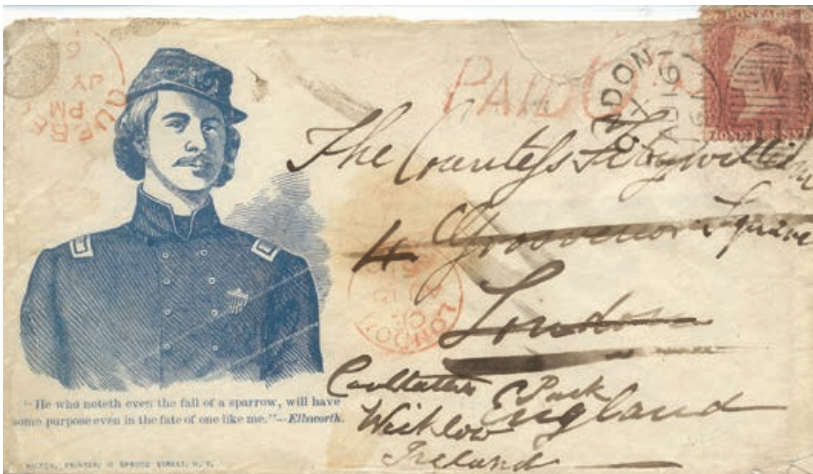 QUEBEC
JY
PM
PAID
LONDON
AU 16
61
W
POSTAGE
ONE PENNY
The Countess Fitzwilliam
4 Grosvenor Square
London
LONDON
Park
Wicklow England
Ireland
"He who noteth even the fall of a sparrow, will have
some purpose even in the fate of one like me."—Ellsworth.
PRINTER, SPRUCE STREET, N. Y.